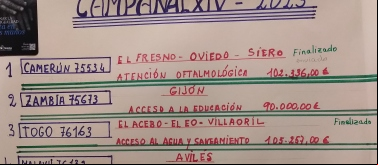 CAMPAÑA LXIV - 2023
EL FRESNO - OVIEDO - SIERO Finalizado
1 CAMERÚN 75534
ATENCIÓN OFTALMOLÓGICA 102.336,00 €
GIJÓN
2 ZAMBIA 75673
ACCESO A LA EDUCACIÓN 90.000,00 €
EL ACEBO - EL EO - VILLAORIL Finalizado
3 TOGO 76163
ACCESO AL AGUA Y SANEAMIENTO 105.257,00 €
AVILÉS